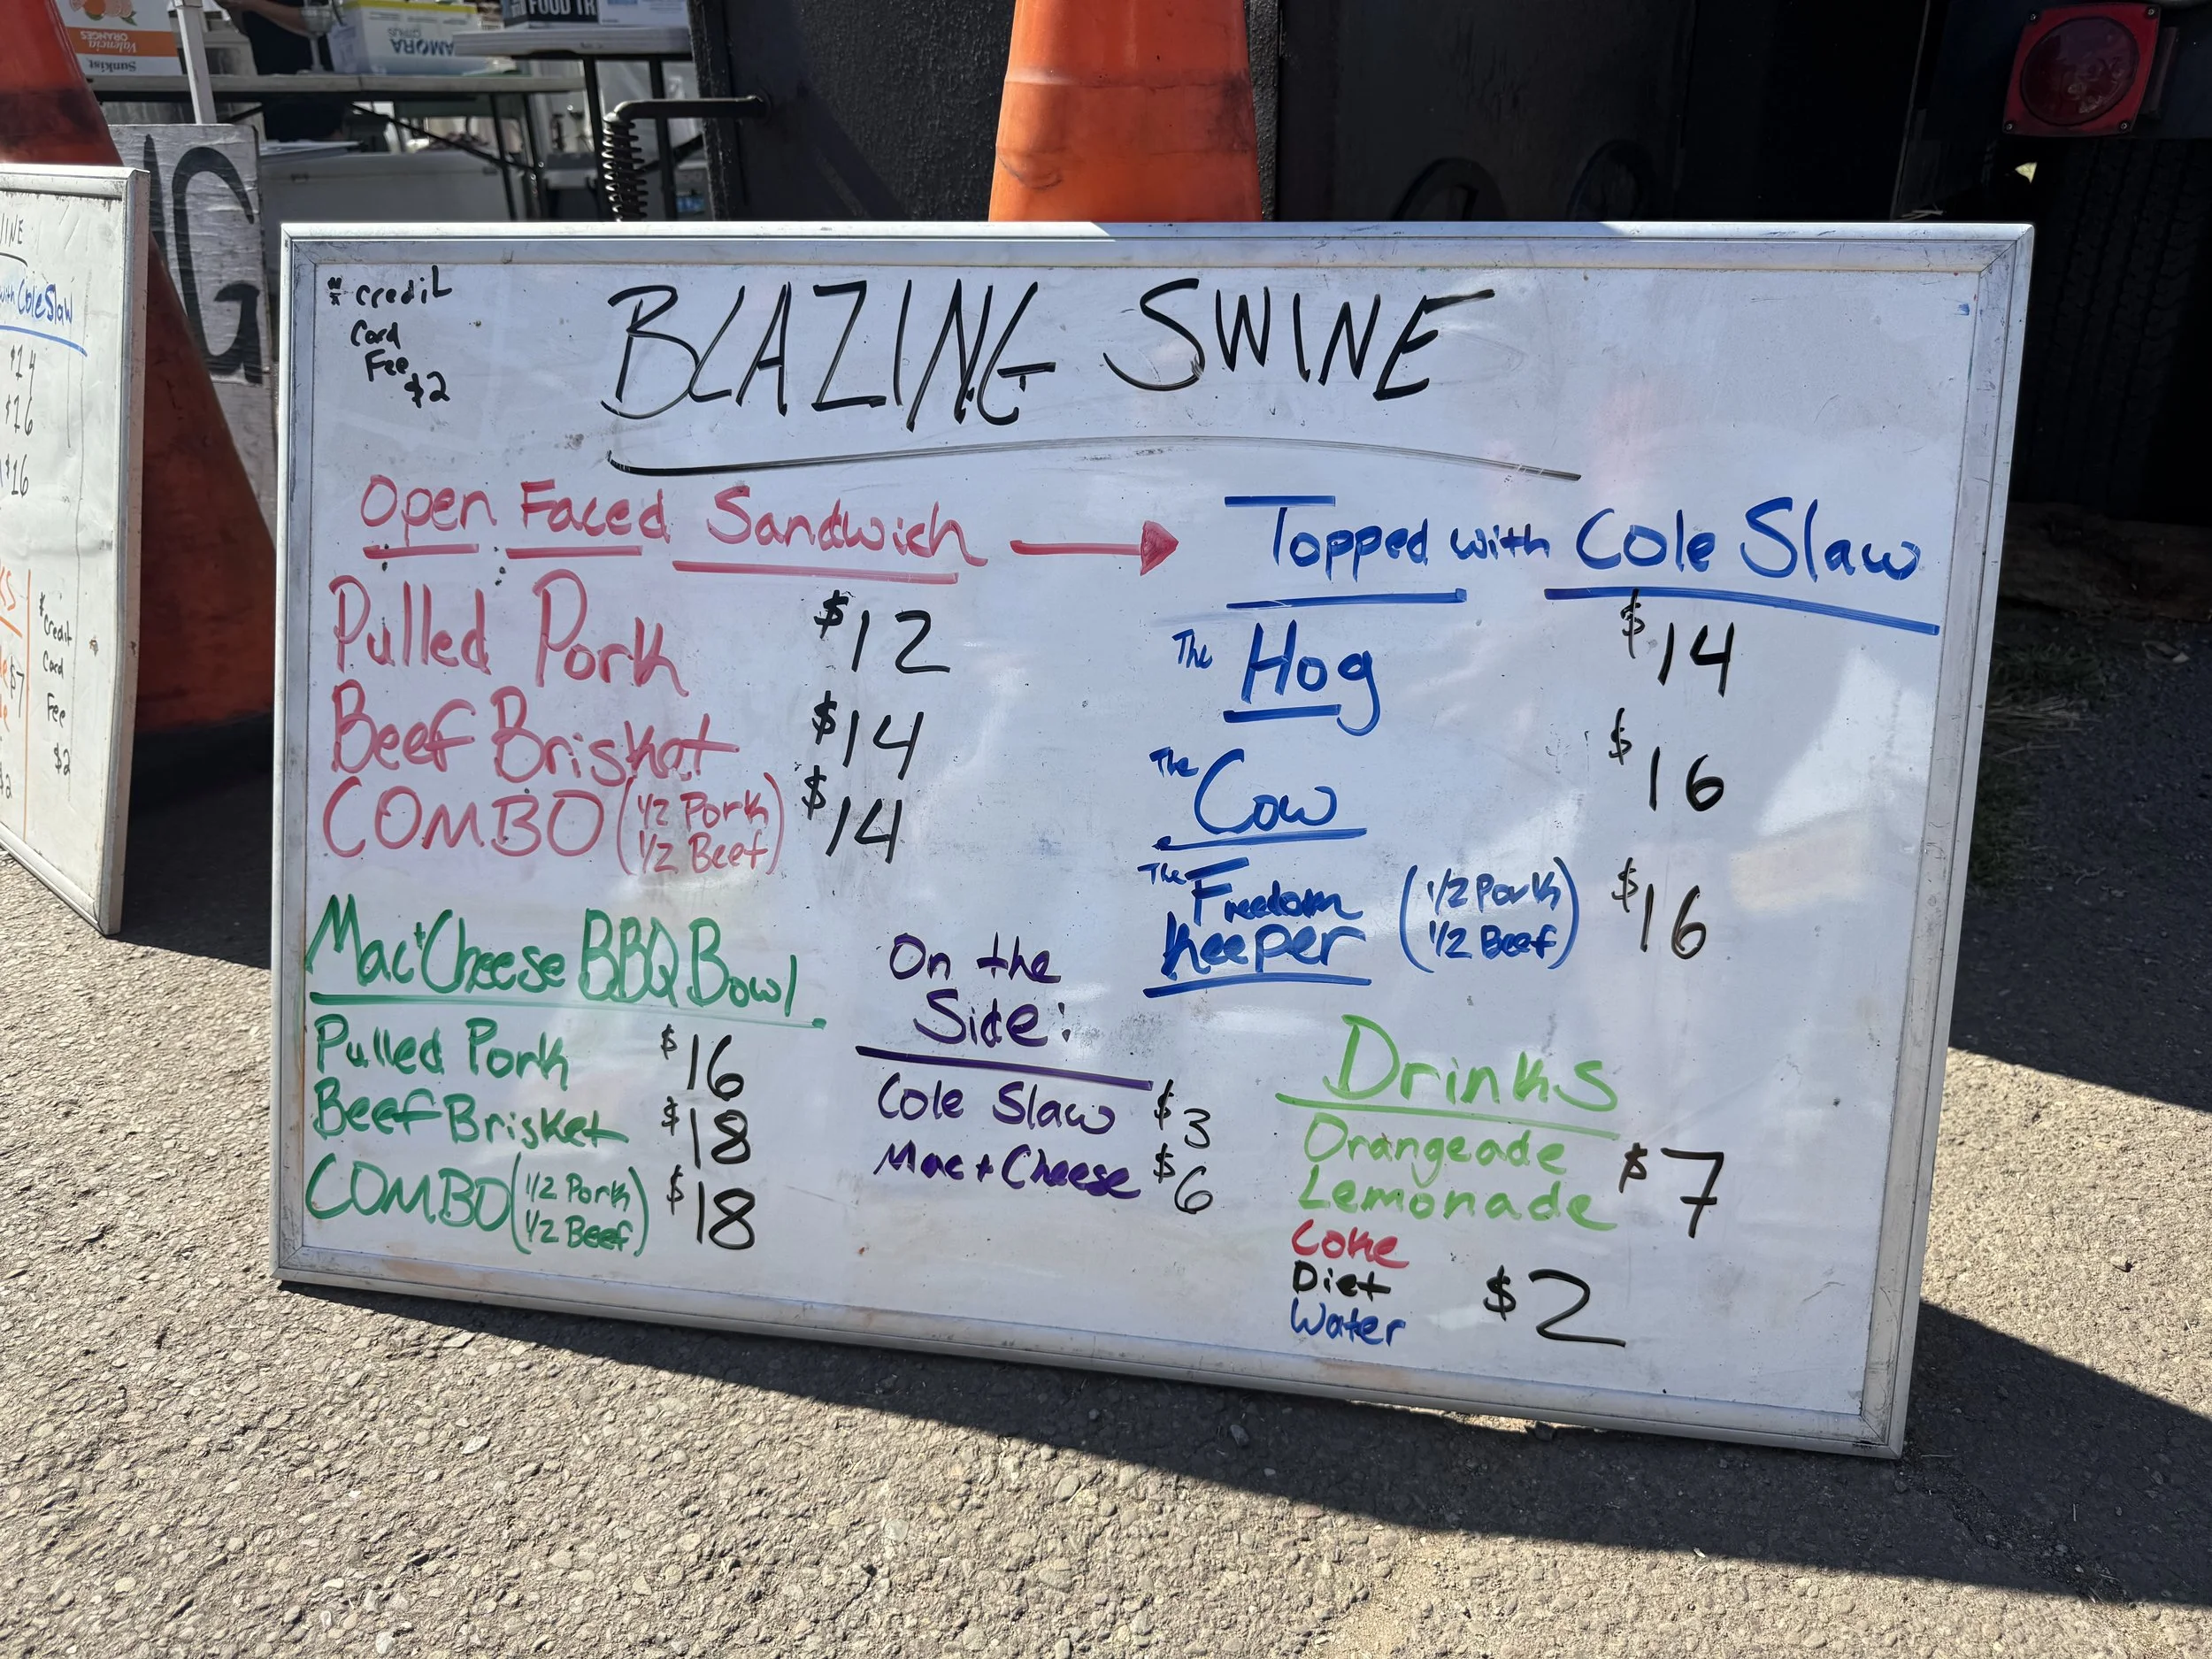 Sunkist
Valencia
ORANGES
AMORA
CITRUS
FOOD TR
NG
INE
with Cole Slaw
$14
$16
$16
* credit
Card
Fee
$2
$7
* credit
Card
Fee
$2
BLAZING SWINE
Open Faced Sandwich
Pulled Pork $12
Beef Brisket $14
COMBO (1/2 Pork 1/2 Beef) $14
Topped with Cole Slaw
The Hog $14
The Cow $16
The Freedom
Keeper (1/2 Pork 1/2 Beef) $16
Mac + Cheese BBQ Bowl
Pulled Pork $16
Beef Brisket $18
COMBO (1/2 Pork 1/2 Beef) $18
On the
Side:
Cole Slaw $3
Mac + Cheese $6
Drinks
Orangeade
Lemonade $7
Coke
Diet $2
Water